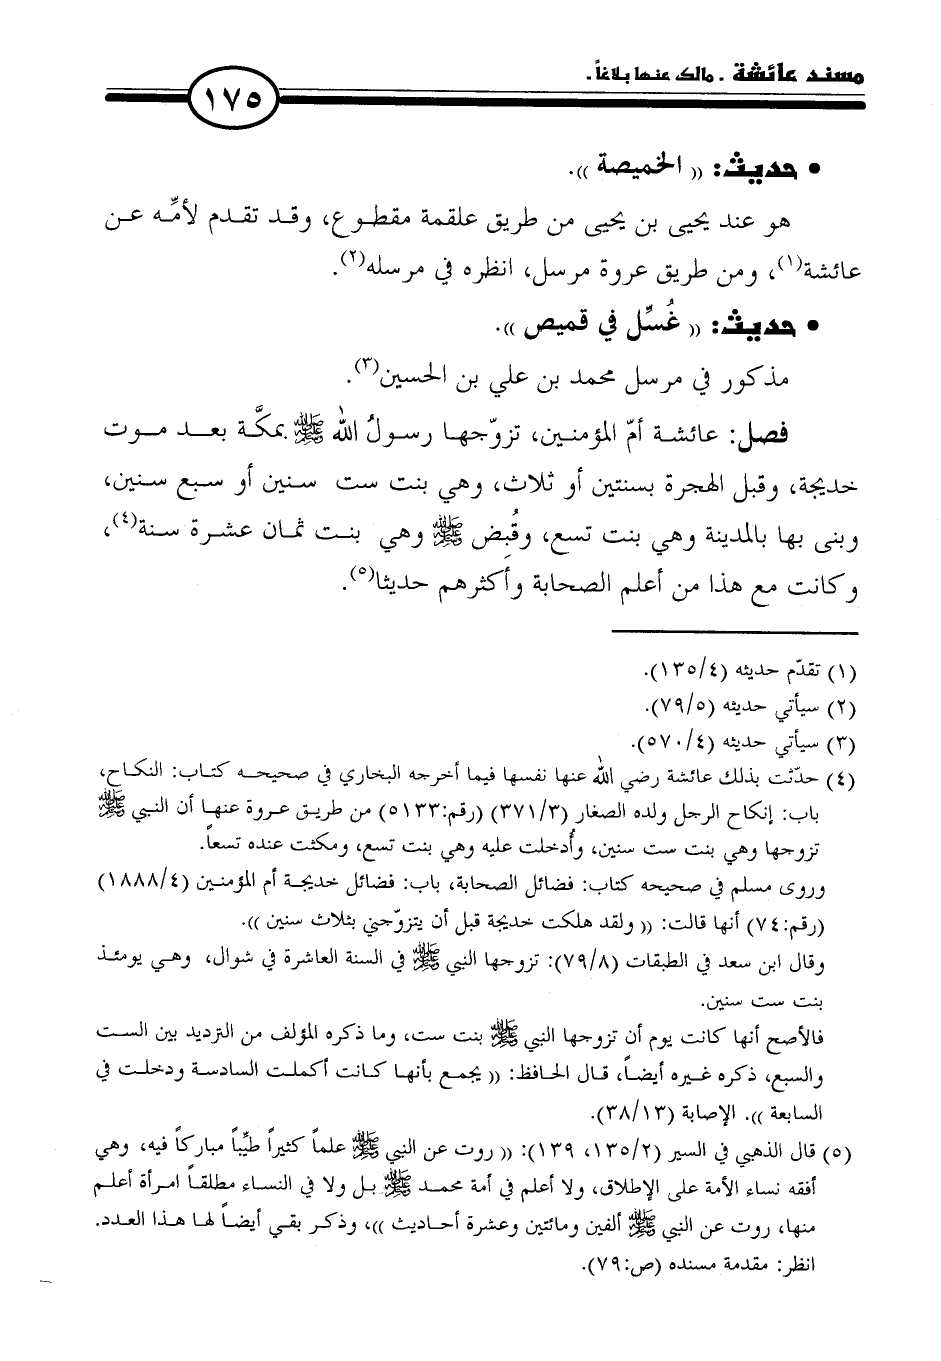 مسند عائشة ـ مالك عنها بلاغاً ـ
١٧٥
• حديث: (( الخميصة )).
هو عند يحيى بن يحيى من طريق علقمة مقطوع، وقد تقدم لأمِّه عن
عائشة(١)، ومن طريق عروة مرسل، انظره في مرسله(٢).
• حديث: (( غُسِّل في قميص )).
مذكور في مرسل محمد بن علي بن الحسين(٣).
فصل: عائشة أمّ المؤمنين، تزوّجها رسولُ الله ﷺ بمكَّة بعد موت
خديجة، وقبل الهجرة بسنتين أو ثلاث، وهي بنت ست سنين أو سبع سنين،
وبنى بها بالمدينة وهي بنت تسع، وقُبِض ﷺ وهي بنت ثمان عشرة سنة(٤)،
وكانت مع هذا من أعلم الصحابة وأكثرهم حديثا(٥).
(١) تقدّم حديثه (١٣٥/٤).
(٢) سيأتي حديثه (٧٩/٥).
(٣) سيأتي حديثه (٥٧٠/٤).
(٤) حدّثت بذلك عائشة رضي الله عنها نفسها فيما أخرجه البخاري في صحيحه كتاب: النكاح،
باب: إنكاح الرجل ولده الصغار (٣٧١/٣) (رقم:٥١٣٣) من طريق عروة عنها أن النبي ﷺ
تزوجها وهي بنت ست سنين، وأُدخلت عليه وهي بنت تسع، ومكثت عنده تسعاً.
وروى مسلم في صحيحه كتاب: فضائل الصحابة، باب: فضائل خديجة أم المؤمنين (١٨٨٨/٤)
(رقم:٧٤) أنها قالت: (( ولقد هلكت خديجة قبل أن يتزوّجني بثلاث سنين )).
وقال ابن سعد في الطبقات (٧٩/٨): تزوجها النبي ﷺ في السنة العاشرة في شوال، وهي يومئذ
بنت ست سنين.
فالأصح أنها كانت يوم أن تزوجها النبي ﷺ بنت ست، وما ذكره المؤلف من الترديد بين الست
والسبع، ذكره غيره أيضاً، قال الحافظ: (( يجمع بأنها كانت أكملت السادسة ودخلت في
السابعة )). الإصابة (٣٨/١٣).
(٥) قال الذهبي في السير (١٣٥/٢، ١٣٩): (( روت عن النبي ﷺ علماً كثيراً طيِّباً مباركاً فيه، وهي
أفقه نساء الأمة على الإطلاق، ولا أعلم في أمة محمد ﷺ بل ولا في النساء مطلقاً امرأة أعلم
منها، روت عن النبي ﷺ ألفين ومائتين وعشرة أحاديث ))، وذكر بقي أيضاً لها هذا العدد.
انظر: مقدمة مسنده (ص:٧٩).